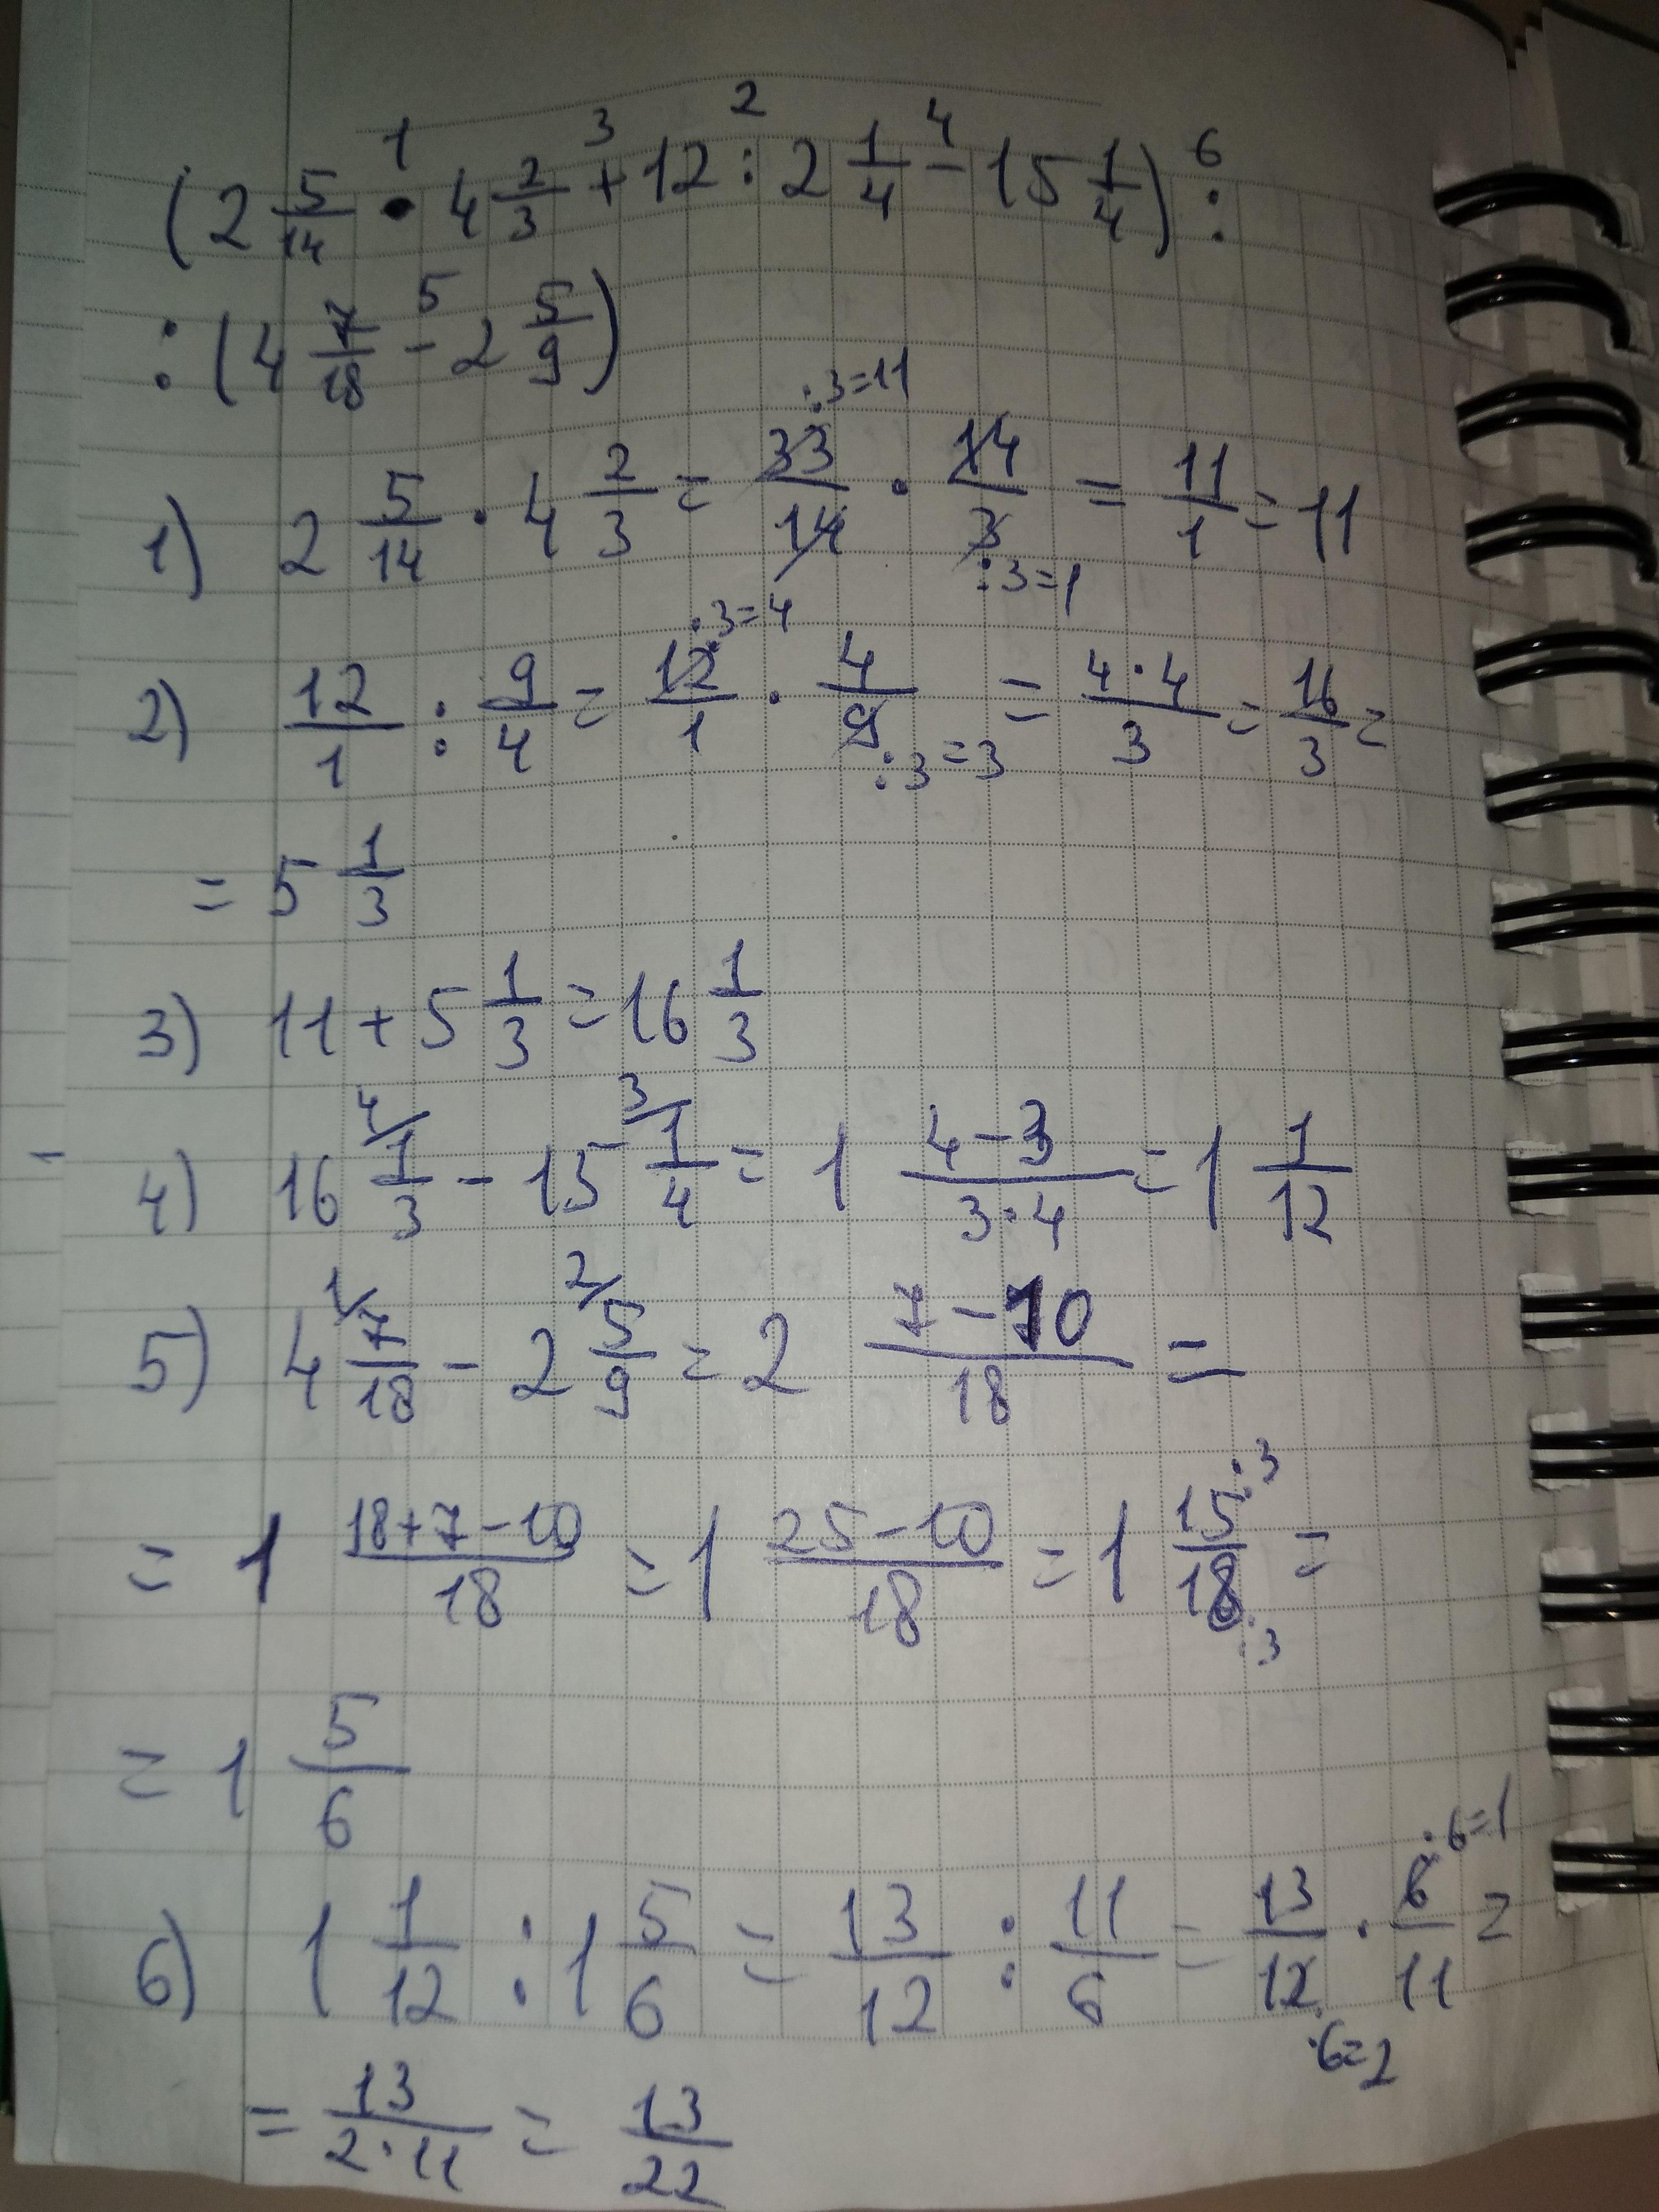 (2 5/14 · 4 2/3 + 12 : 2 1/4 - 15 1/4) :
1 3 2 4 6
: (4 7/18 - 2 5/9)
5
1) 2 5/14 · 4 2/3 = 33/14 · 14/3 = 11/1 = 11
:3=11
:3=1
2) 12/1 : 9/4 = 12/1 · 4/9 = 4·4/3 = 16/3 =
:3=4
:3=3
= 5 1/3
3) 11 + 5 1/3 = 16 1/3
4) 16 4/ 1/3 - 15 3/ 1/4 = 1 4-3/3·4 = 1 1/12
5) 4 1/ 7/18 - 2 2/ 5/9 = 2 7-10/18 =
= 1 18+7-10/18 = 1 25-10/18 = 1 15/18 =
:3
:3
= 1 5/6
6) 1 1/12 : 1 5/6 = 13/12 : 11/6 = 13/12 · 6/11 =
:6=1
:6=2
= 13/2·11 = 13/22